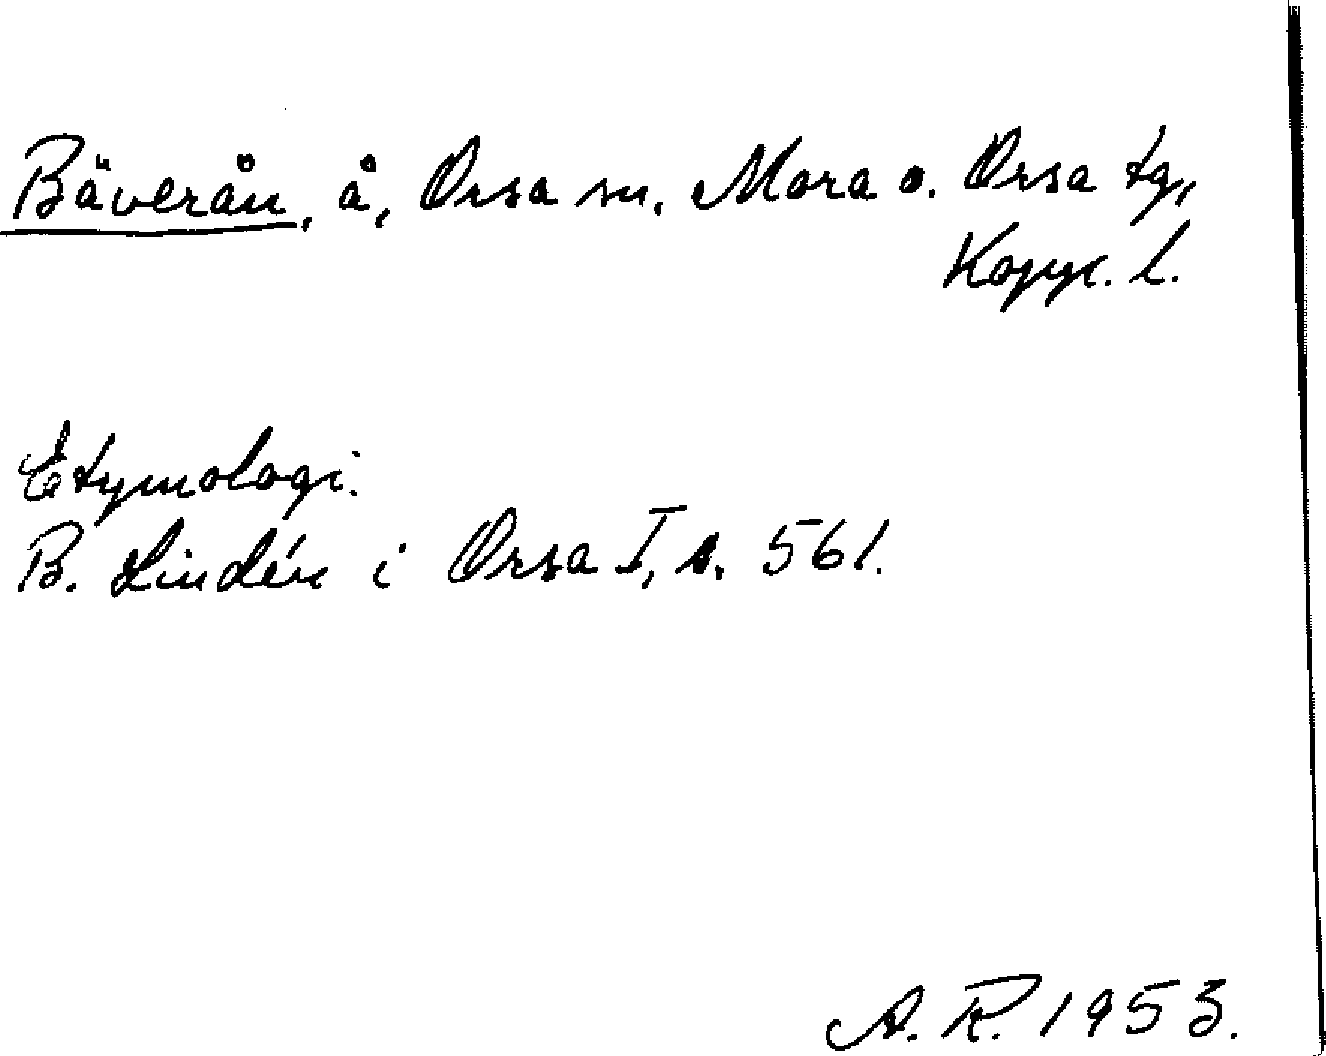 Bäverån, å, Orsa sn. Mora o. Orsa tg,
Kopp. l.
Etymologi.
B. Lindén i Orsa I, s. 561.
A. R. 1953.